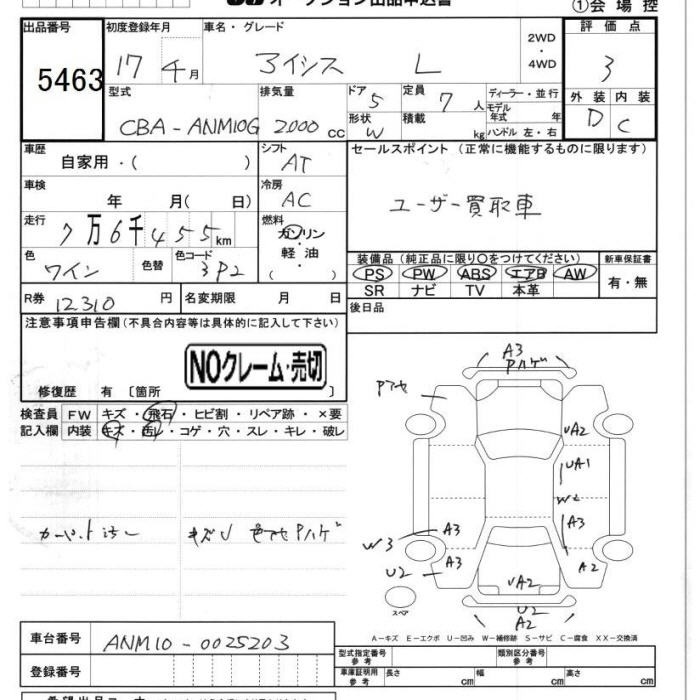 オークション出品申込書
①会場控
出品番号 5463
初度登録年月 17年4月
車名・グレード アイシス L
2WD・4WD
評価点 3
型式 CBA-ANM10G
排気量 2000cc
ドア 5
形状 W
定員 7人
積載 kg
ディーラー・並行
モデル年式 年
ハンドル 左・右
外装 D 内装 C
車歴 自家用・( )
シフト AT
セールスポイント (正常に機能するものに限ります)
ユーザー買取車
車検 年 月(日)
冷房 AC
走行 7万6千455km
燃料 ガソリン・軽油・( )
色 ワイン 色替 色コード 3P2
装備品 (純正品に限り○をつけてください)
新車保証書
PS PW ABS エアB AW
有・無
SR ナビ TV 本革
R券 12310円 名変期限 月 日
後日品
注意事項申告欄 (不具合内容等は具体的に記入して下さい)
NOクレーム・売切
修復歴 有 〔箇所 〕
検査員記入欄
FW キズ・飛石・ヒビ割・リペア跡・×要
内装 キズ・汚レ・コゲ・穴・スレ・キレ・破レ
キズU 色アセPハゲ
A3
Pハゲ
Pアセ
UA2
UA1
W2
A3
A3
W3
A3
U2
UA2
A2
U2
A2
スペア
A-キズ E-エクボ U-凹み W-補修跡 S-サビ C-腐食 XX-交換済
車台番号 ANM10-0025203
登録番号
型式指定番号 参考
類別区分番号 参考
車庫証明用 参考 長さ cm 幅 cm 高さ cm